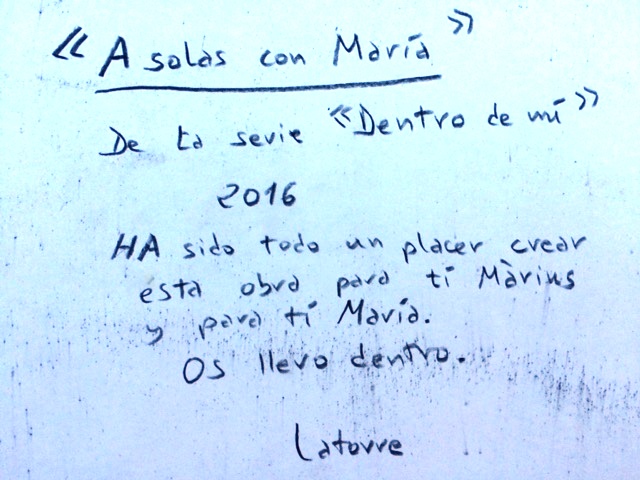 «A solas con María»
De la serie «Dentro de mí»
2016
HA sido todo un placer crear
esta obra para tí Màrius
y para tí María.
Os llevo dentro.
Latorre